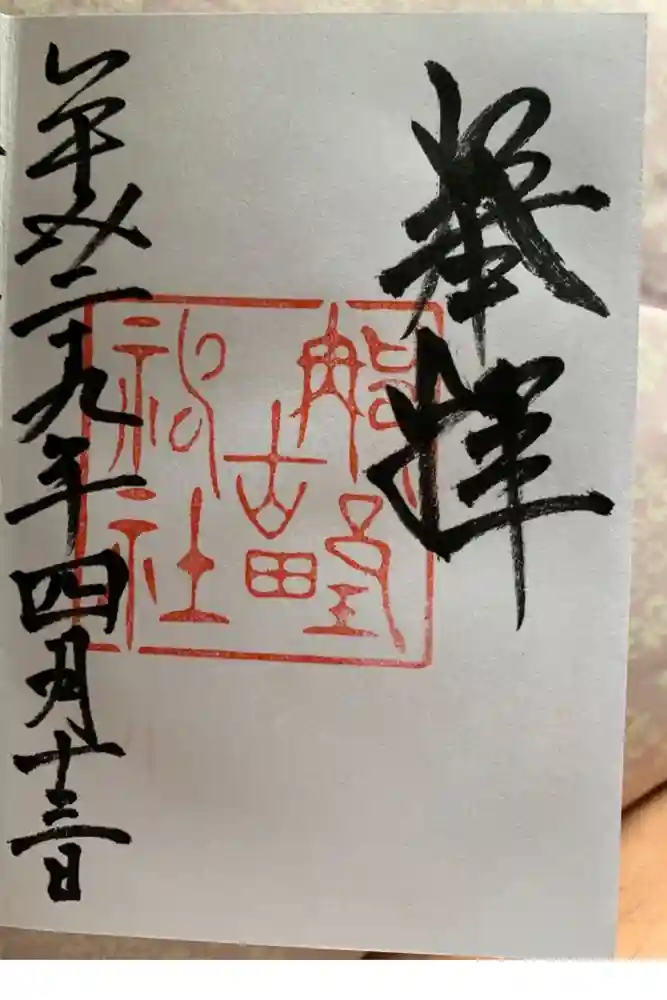 奉拝
那古野神社
平成二十九年四月十三日